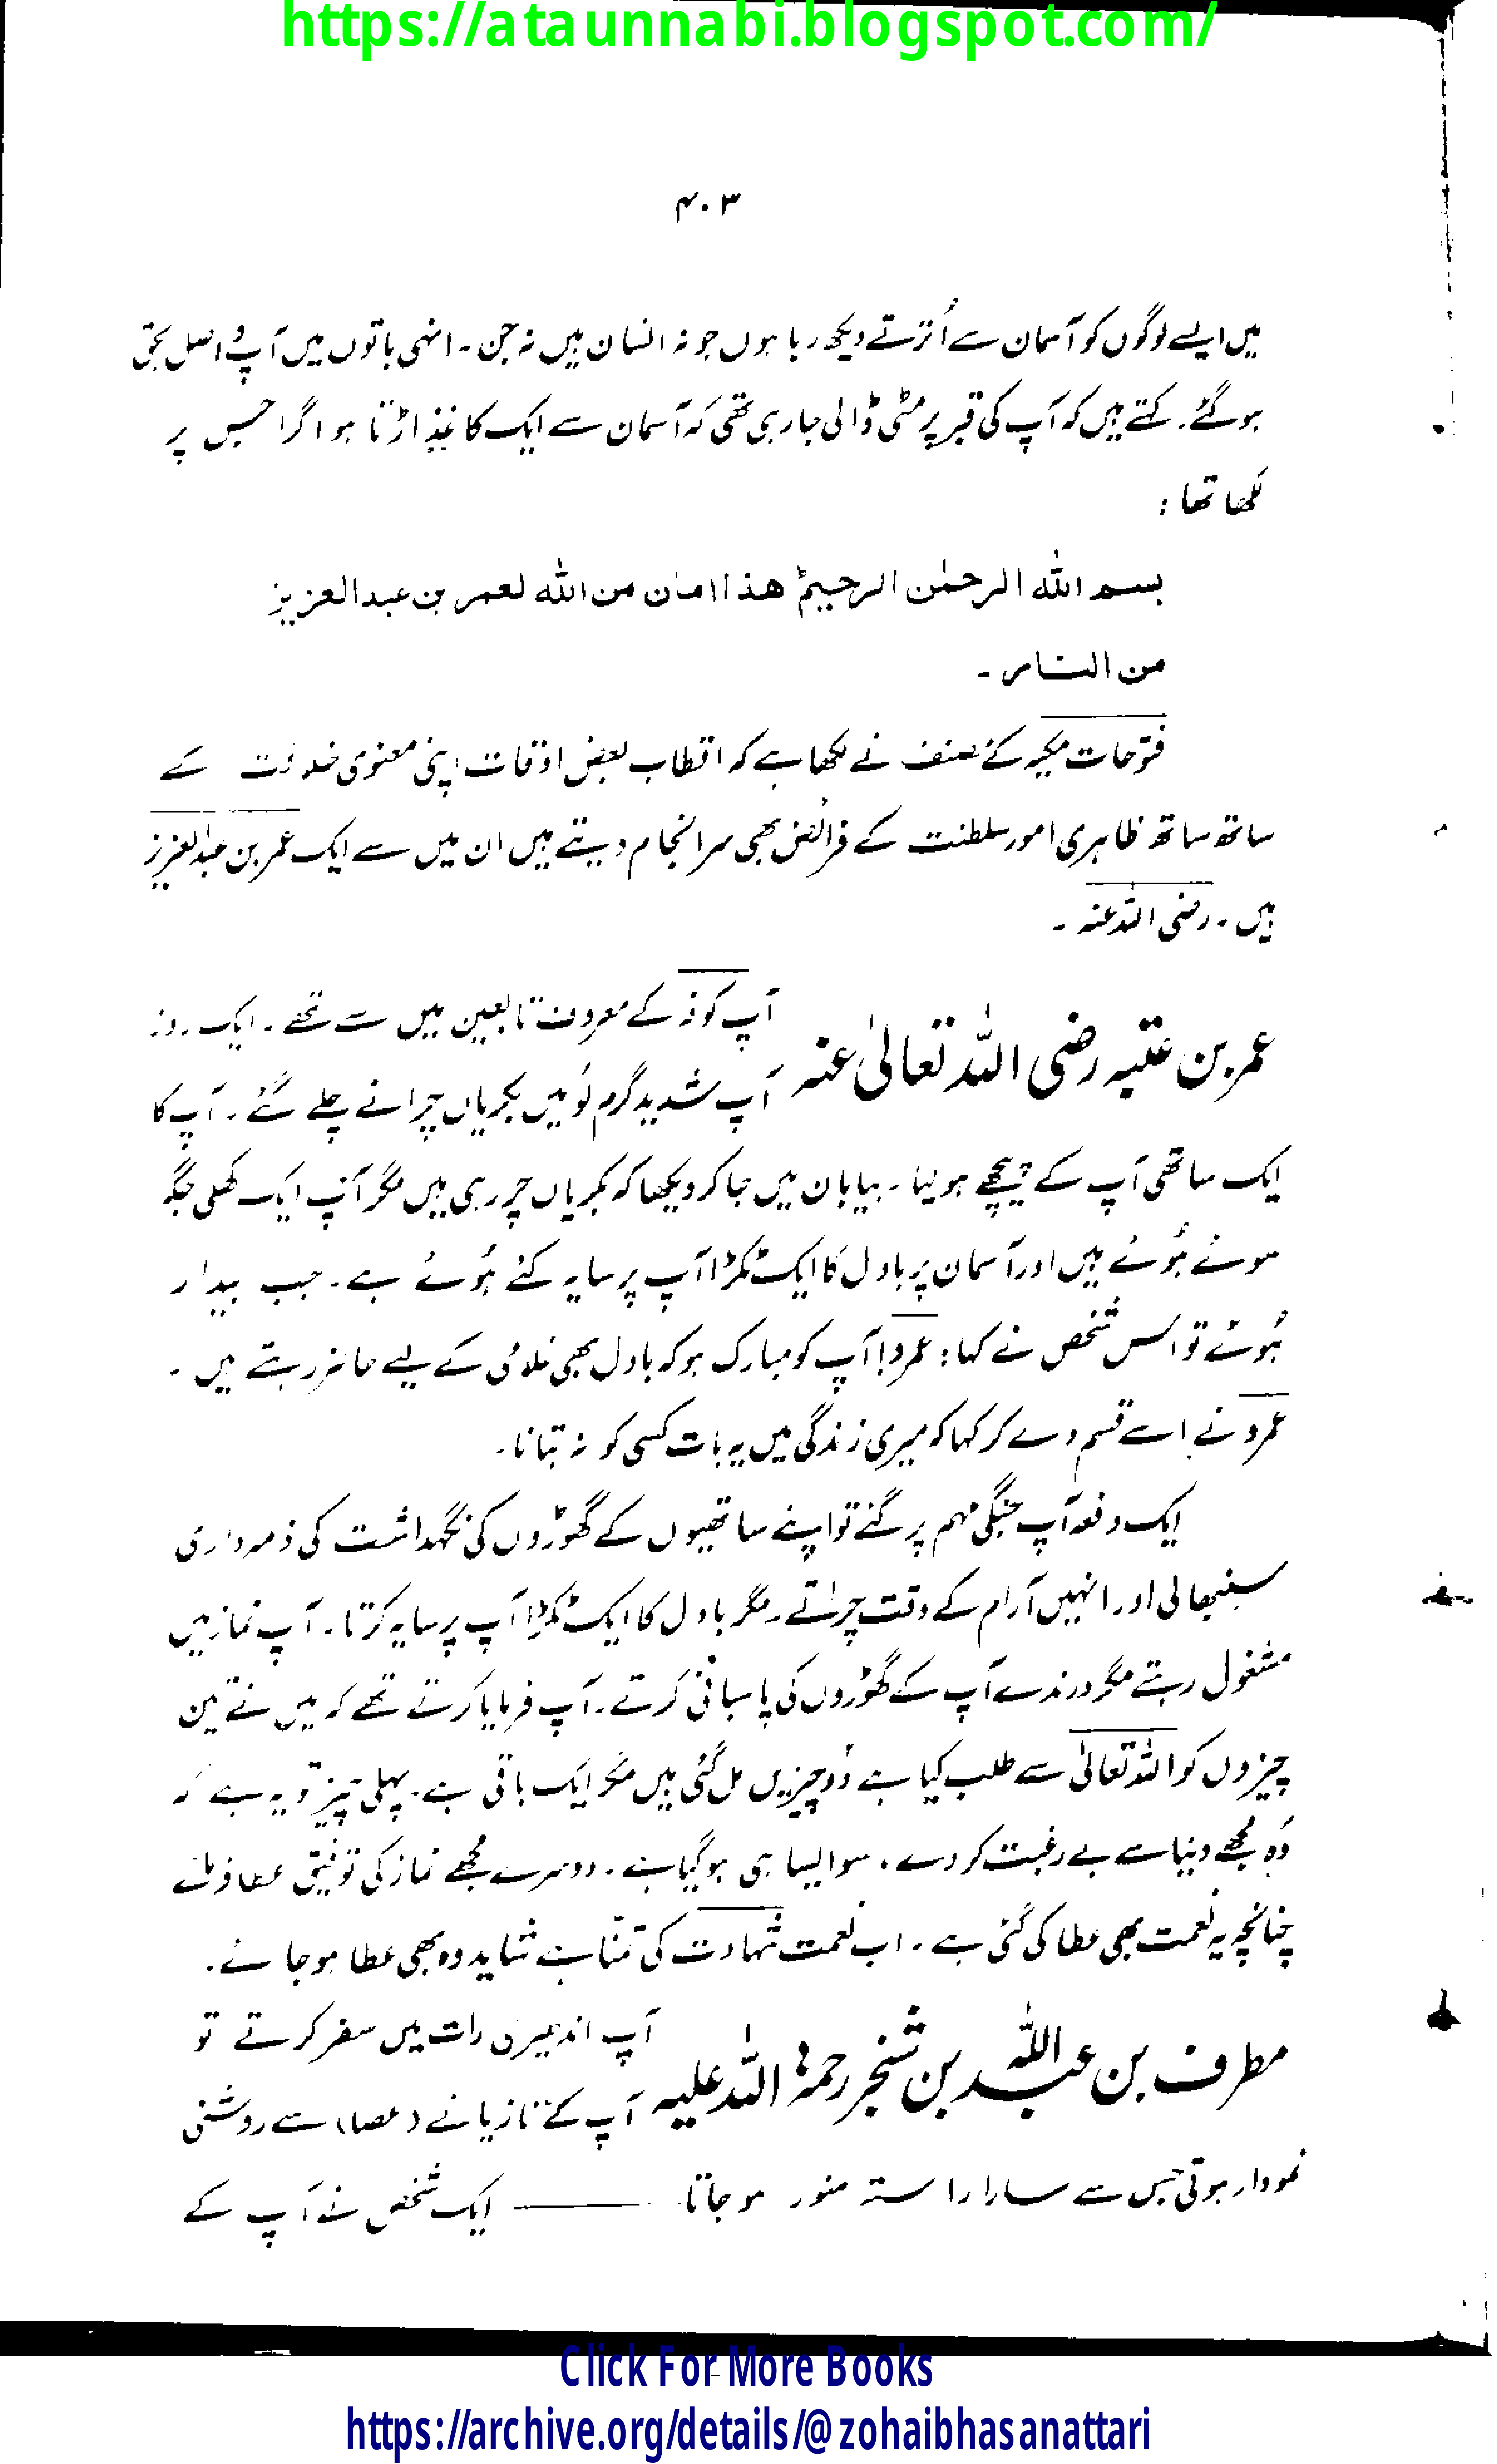 https://ataunnabi.blogspot.com/
۴۰۳
میں ایسے لوگوں کو آسمان سے اُترتے دیکھ رہا ہوں جو نہ انسان ہیں نہ جن۔ انہی باتوں میں آپ واصل بحق
ہوگئے۔ کہتے ہیں کہ آپ کی قبر پر مٹی ڈالی جارہی تھی کہ آسمان سے ایک کاغذ اڑتا ہوا گرا جس پر
لکھا تھا :
بسم اللہ الرحمٰن الرحیم ھذا امان من اللہ لعمر بن عبدالعزیز
من النار ۔
فتوحات مکیہ کے مصنف نے لکھا ہے کہ اقطاب بعض اوقات اپنی معنوی خلافت کے
ساتھ ساتھ ظاہری امور سلطنت کے فرائض بھی سرانجام دیتے ہیں ان میں سے ایک عمر بن عبدالعزیز
ہیں ۔ رضی اللہ عنہ ۔
عمر بن عتبہ رضی اللہ تعالیٰ عنہ
آپ کوفہ کے معروف تابعین میں سے تھے ۔ ایک روز
آپ شدید گرم لُو میں بکریاں چرانے چلے گئے ۔ آپ کا
ایک ساتھی آپ کے پیچھے ہولیا ۔ بیابان میں جاکر دیکھا کہ بکریاں چر رہی ہیں مگر آپ ایک کھلی جگہ
سوئے ہُوئے ہیں اور آسمان پر بادل کا ایک ٹکڑا آپ پر سایہ کئے ہُوئے ہے ۔ جب بیدار
ہُوئے تو اس شخص نے کہا : عمرو! آپ کو مبارک ہو کہ بادل بھی غلامی کے لیے حاضر رہتے ہیں ۔
عمرو نے اسے قسم دے کر کہا کہ میری زندگی میں یہ بات کسی کو نہ بتانا ۔
ایک دفعہ آپ جنگی مہم پر گئے تو اپنے ساتھیوں کے گھوڑوں کی نگہداشت کی ذمہ داری
سنبھالی اور انہیں آرام کے وقت چراتے ۔ مگر بادل کا ایک ٹکڑا آپ پر سایہ کرتا ۔ آپ نماز میں
مشغول رہتے مگر درندے آپ کے گھوڑوں کی پاسبانی کرتے ۔ آپ فرمایا کرتے تھے کہ میں نے تین
چیزوں کو اللہ تعالیٰ سے طلب کیا ہے دو چیزیں مل گئی ہیں مگر ایک باقی ہے۔ پہلی چیز تو یہ ہے کہ
وُہ مجھے دنیا سے بے رغبت کردے ، سو ایسا ہی ہوگیا ہے ۔ دوسرے مجھے نماز کی توفیق عطا فرمائے
چنانچہ یہ نعمت بھی عطا کی گئی ہے ۔ اب نعمت شہادت کی تمنّا ہے شاید وہ بھی عطا ہوجائے ۔
مطرف بن عبداللہ بن شنجر رحمۃ اللہ علیہ
آپ اندھیری رات میں سفر کرتے تو
آپ کے تازیانے (عصا) سے روشنی
نمودار ہوتی جس سے سارا راستہ منور ہوجاتا ——— ایک شخص نے آپ کے
Click For More Books
https://archive.org/details/@zohaibhasanattari